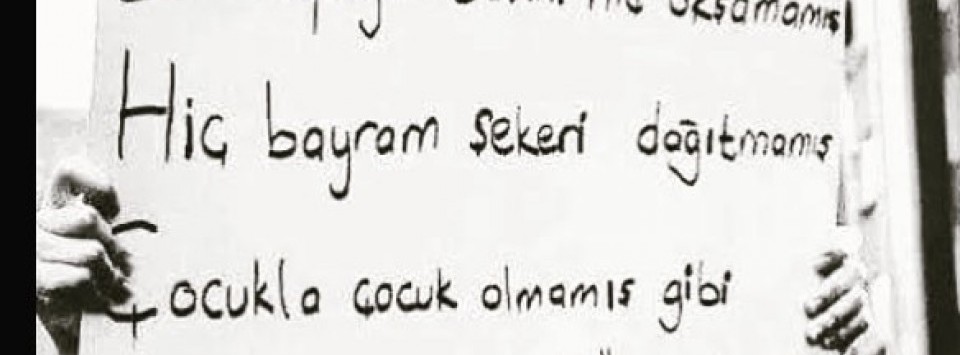 okşamamış
Hiç bayram şekeri dağıtmamış
Çocukla çocuk olmamıs gibi